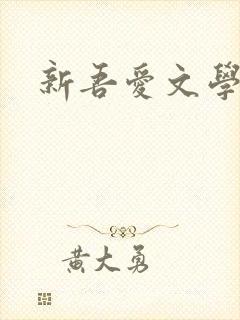 新吾愛文學
黃大勇